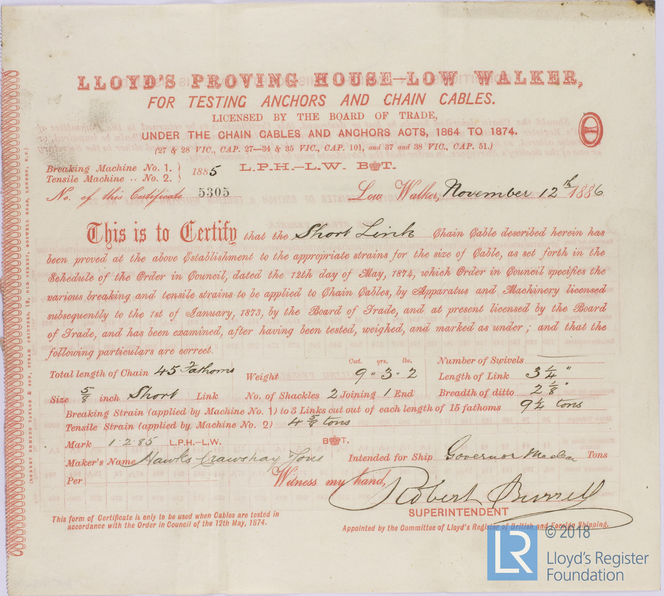 LLOYD'S PROVING HOUSE—LOW WALKER,
FOR TESTING ANCHORS AND CHAIN CABLES.
LICENSED BY THE BOARD OF TRADE,
UNDER THE CHAIN CABLES AND ANCHORS ACTS, 1864 TO 1874.
(27 & 28 VIC., CAP. 27—34 & 35 VIC., CAP. 101, and 37 and 38 VIC., CAP. 51.)
Breaking Machine No. 1. } 1885 L.P.H.—L.W. B T.
Tensile Machine .. No. 2. }
No. of this Certificate 5305 Low Walker, November 12th 1886
This is to Certify that the Short Link Chain Cable described herein has
been proved at the above Establishment to the appropriate strains for the size of Cable, as set forth in the
Schedule of the Order in Council, dated the 12th day of May, 1874, which Order in Council specifies the
various breaking and tensile strains to be applied to Chain Cables, by Apparatus and Machinery licensed
subsequently to the 1st of January, 1873, by the Board of Trade, and at present licensed by the Board
of Trade, and has been examined, after having been tested, weighed, and marked as under; and that the
following particulars are correct.
Cwt. qrs. lbs. Number of Swivels
Total length of Chain 45 Fathoms Weight 9 " 3 - 2 Length of Link 3 1/4 "
Size 5/8 inch Short Link No. of Shackles 2 Joining 1 End Breadth of ditto 2 1/8 "
Breaking Strain (applied by Machine No. 1) to 3 Links cut out of each length of 15 fathoms 9 1/4 tons
Tensile Strain (applied by Machine No. 2) 4 5/8 tons
Mark 1.2.85 L.P.H.—L.W. B T.
Maker's Name Hawks Crawshay Sons Intended for Ship Governor Tons
Per Witness my hand,
Robert Burrell
SUPERINTENDENT
This form of Certificate is only to be used when Cables are tested in
accordance with the Order in Council of the 12th May, 1874.
Appointed by the Committee of Lloyd's Register of British and Foreign Shipping.
© 2018
LR Lloyd's Register
Foundation